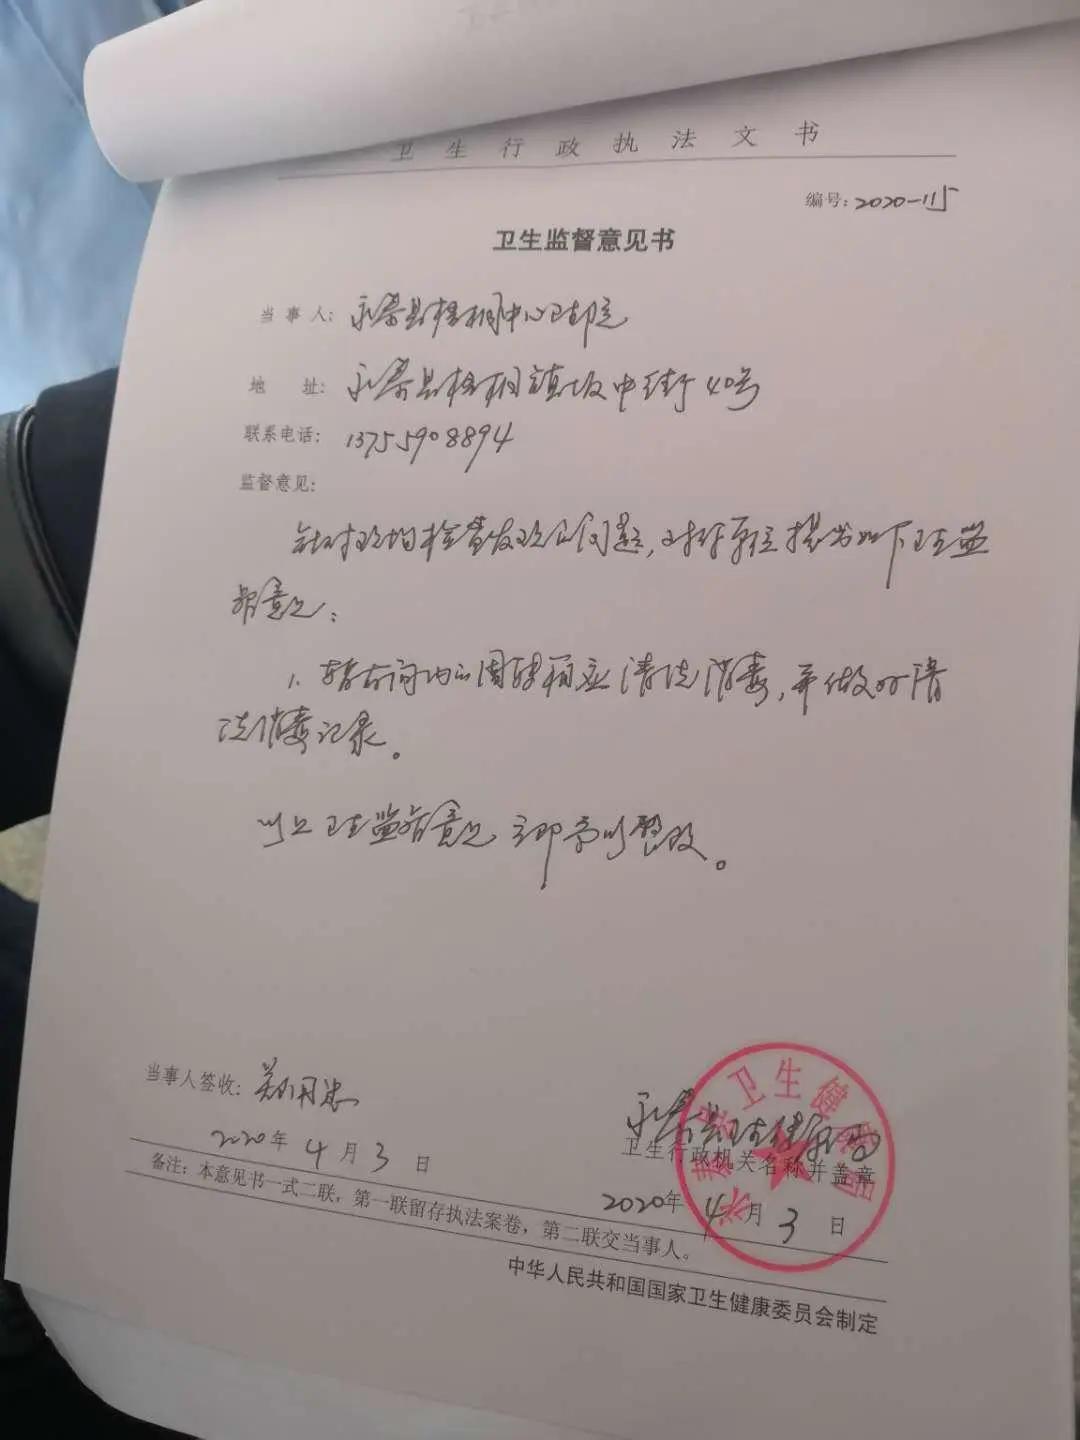 卫生行政执法文书
编号：2020-115
卫生监督意见书
当事人：永泰县梧桐中心卫生院
地址：永泰县梧桐镇坂中街40号
联系电话：13755908894
监督意见：
针对现场检查发现的问题，对你单位提出如下卫生监
督意见：
1、暂存间内的周转箱应清洗消毒，并做好清
洗消毒记录。
以上卫生监督意见立即予以整改。
当事人签收：
2020年4月3日
永泰县卫生健康局
卫生行政机关名称并盖章
2020年4月3日
备注：本意见书一式二联，第一联留存执法案卷，第二联交当事人。
中华人民共和国国家卫生健康委员会制定